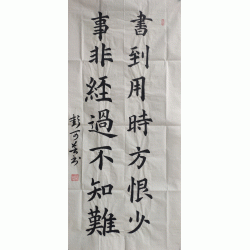 書到用時方恨少
事非經過不知難
彭可兰书